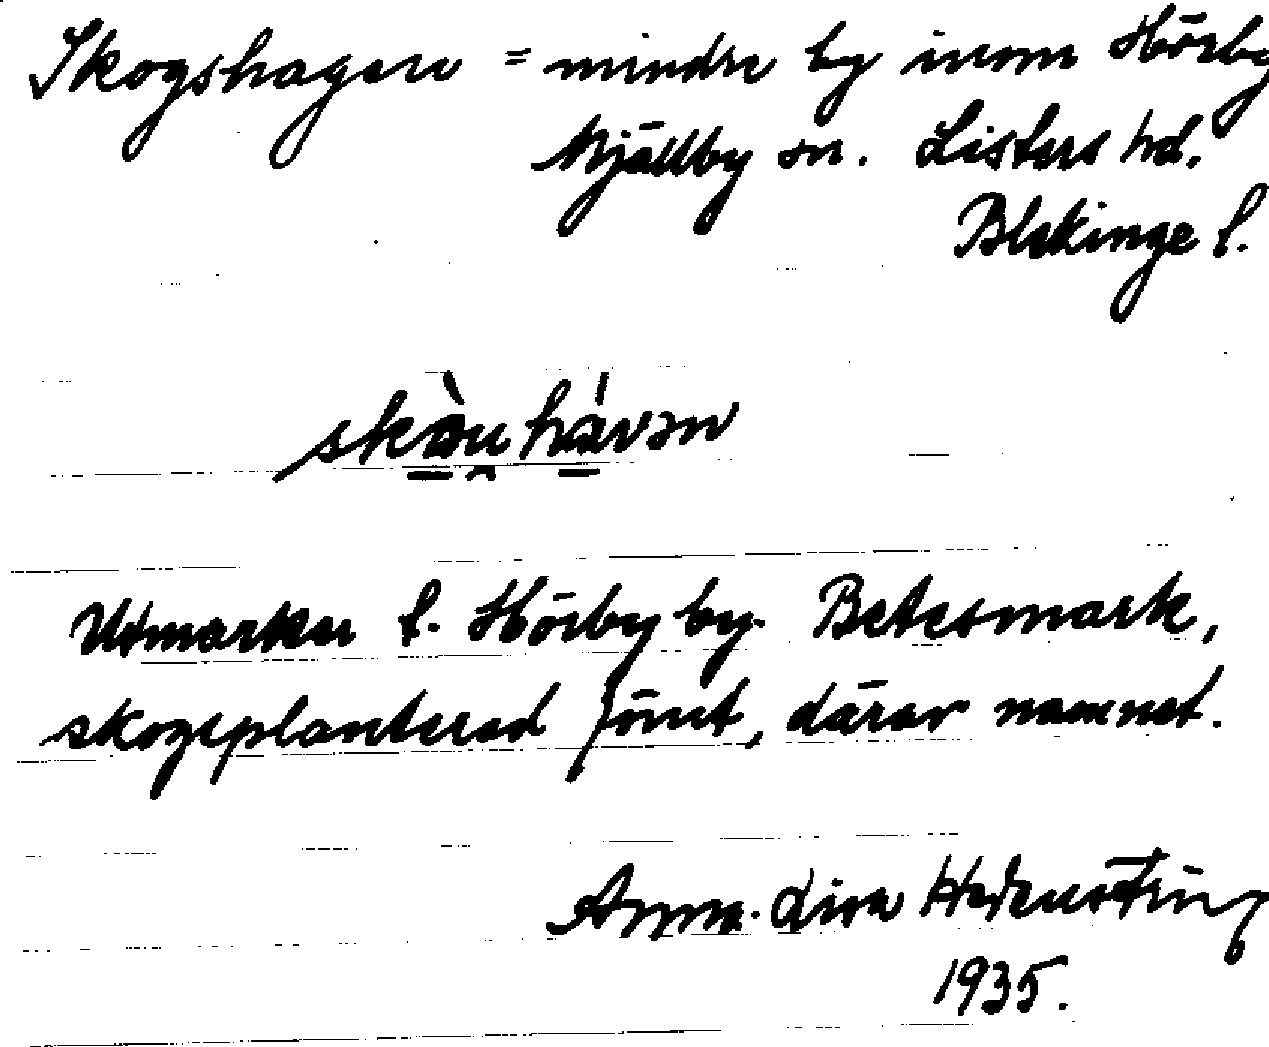 Skogshagen = mindre by inom Hörby
Mjällby sn. Listers hd.
Blekinge l.
Utmarker t. Hörby by. Betesmark,
skogsplanterad förut, därav namnet.
Anna-Lisa
1935.